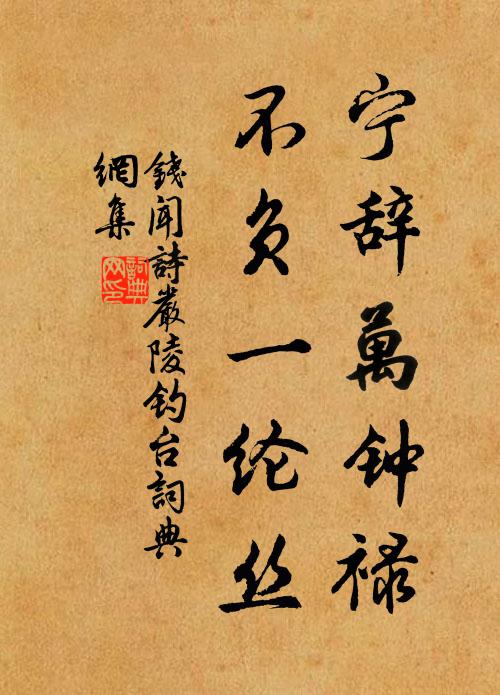 宁辞萬钟禄
不负一纶丝
錢聞詩嚴陵钓台詞典
網集
詞典
网印